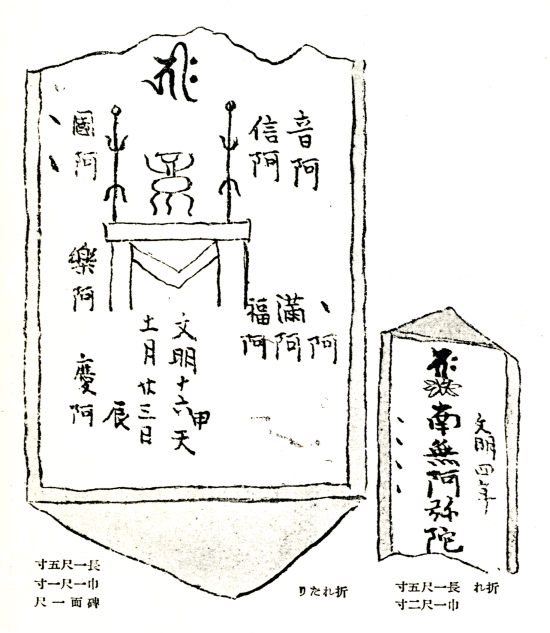 音阿
信阿
國阿
阿
満阿
福阿
樂阿
慶阿
文明十六天
甲辰
十一月廿三日
長一尺五寸
巾一尺一寸
碑面一尺
折れたり
文明四年
南無阿弥陀
折れ 長一尺五寸
巾一尺二寸